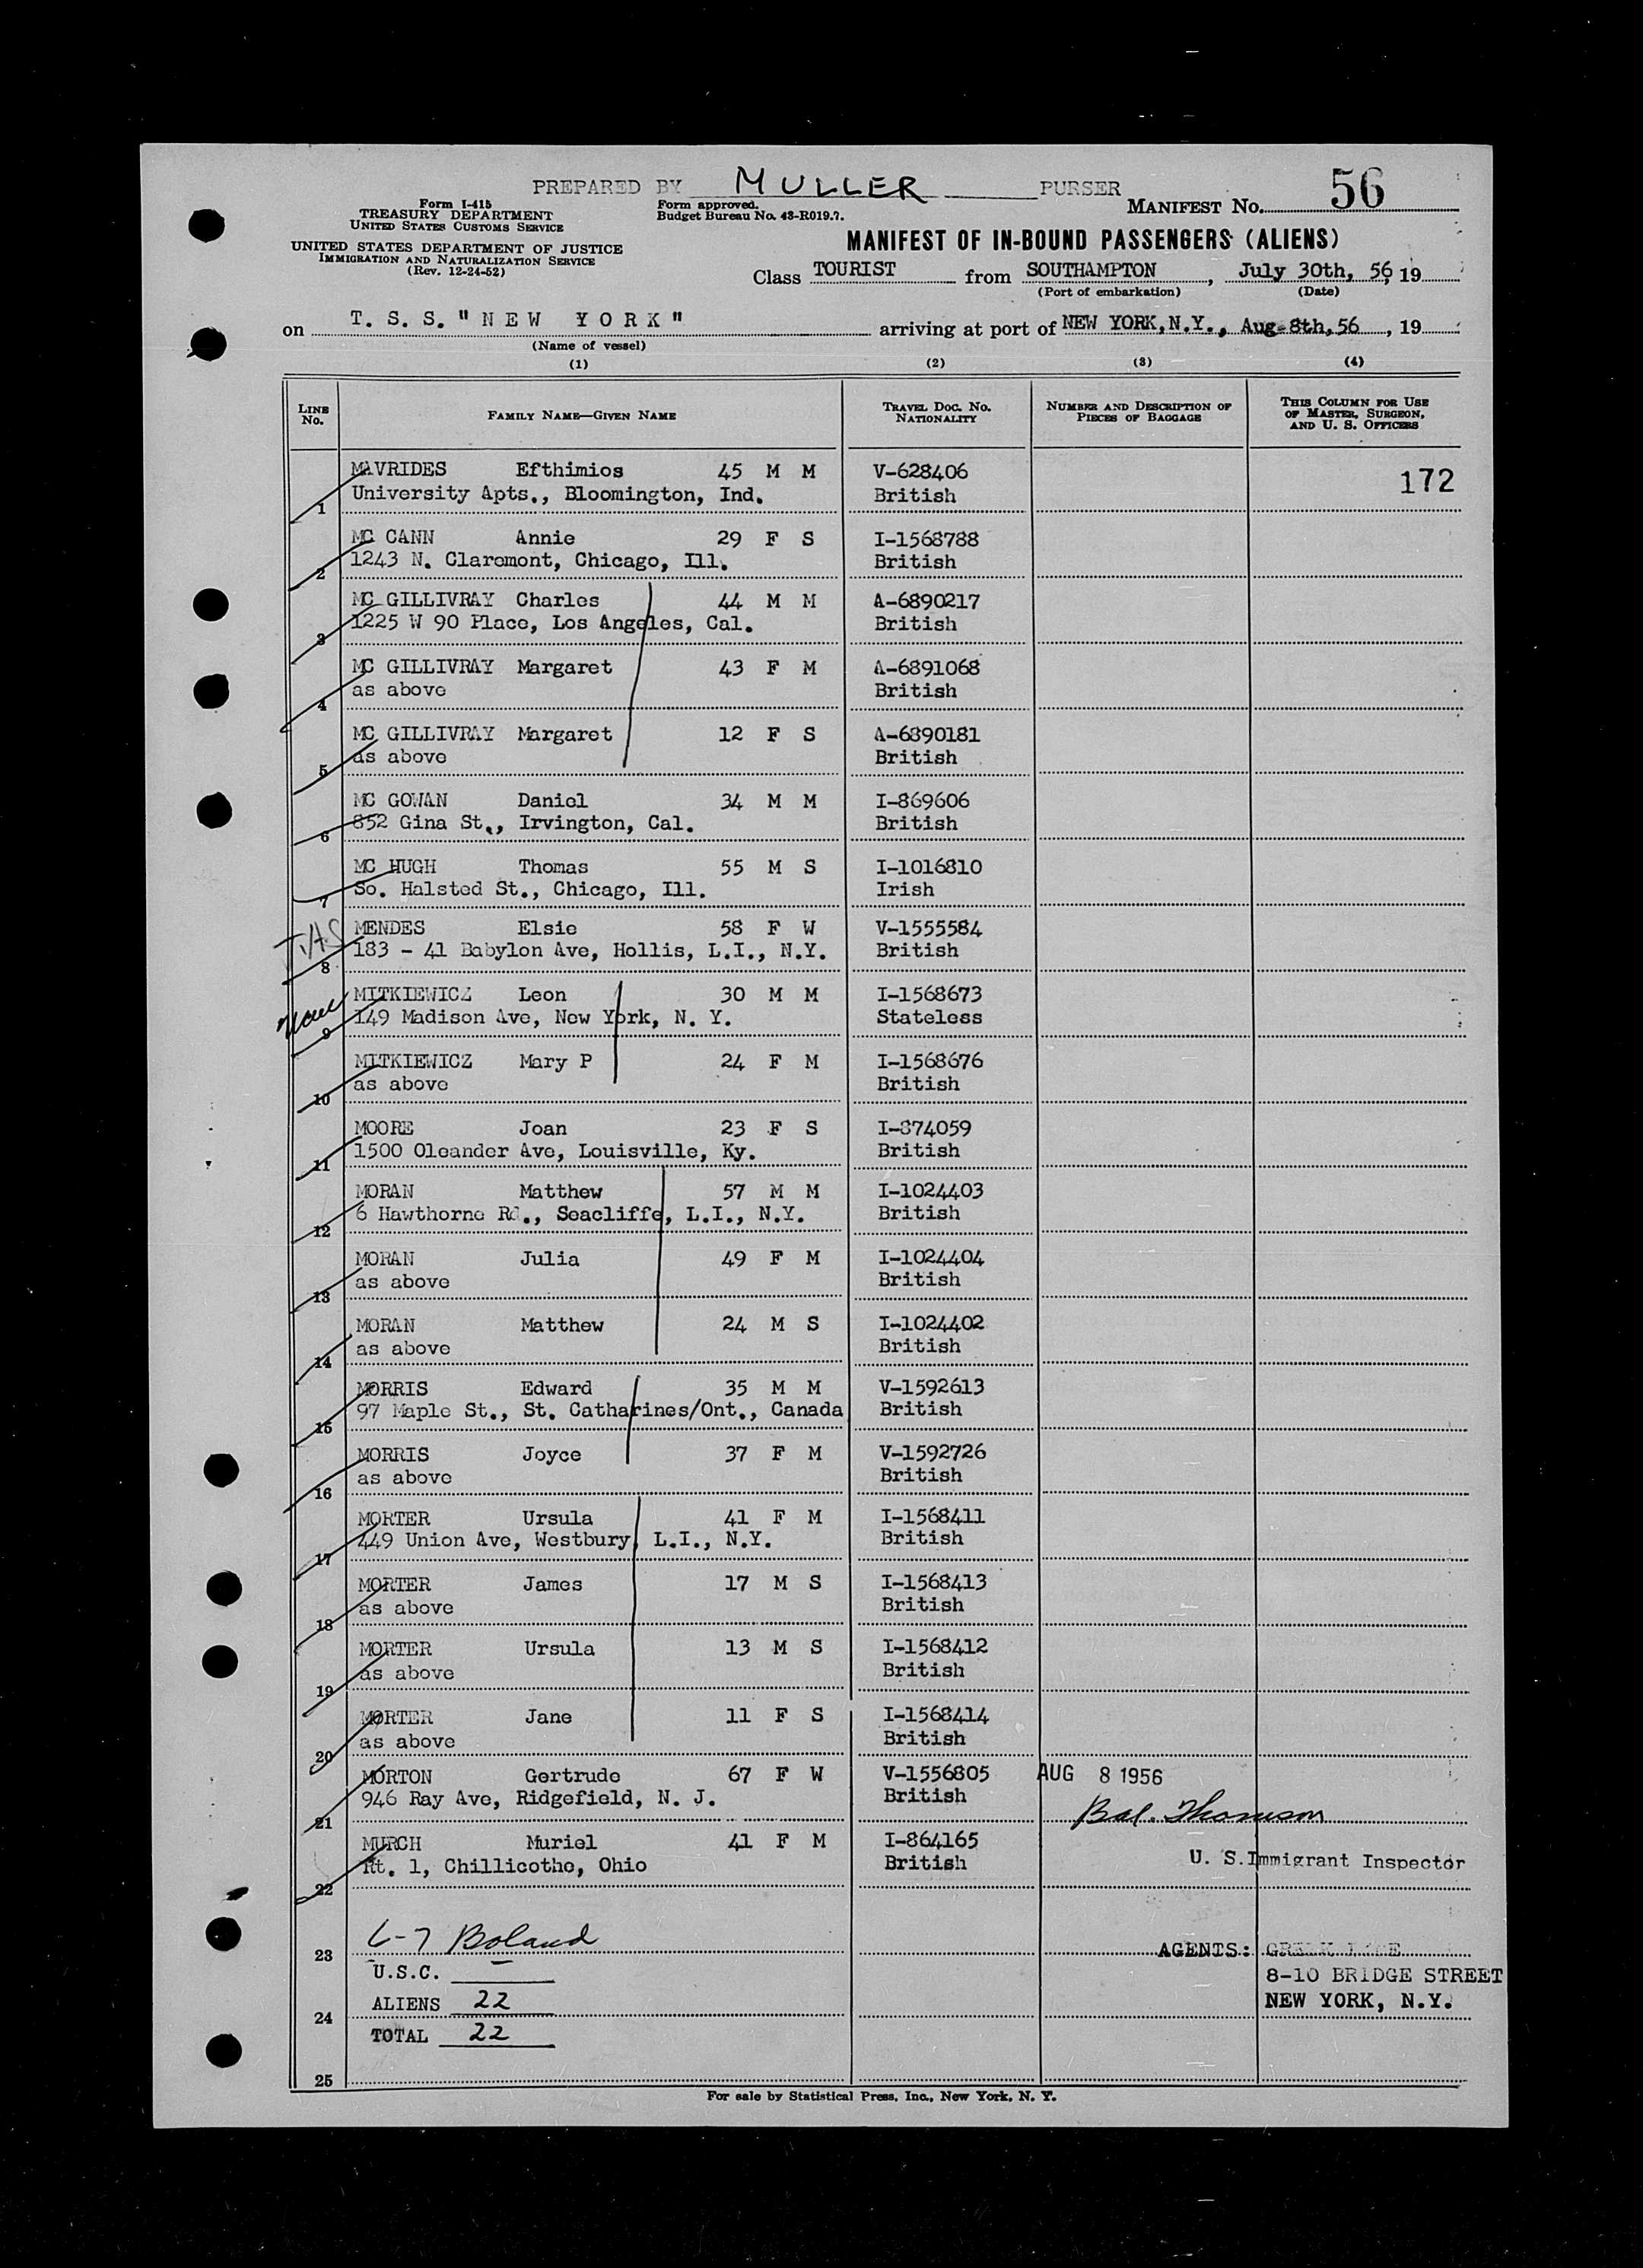 PREPARED BY MULLER PURSER
Form I-415
TREASURY DEPARTMENT
UNITED STATES CUSTOMS SERVICE
UNITED STATES DEPARTMENT OF JUSTICE
IMMIGRATION AND NATURALIZATION SERVICE
(Rev. 12-24-52)
Form approved.
Budget Bureau No. 43-R019.7.
MANIFEST No. 56
MANIFEST OF IN-BOUND PASSENGERS (ALIENS)
Class TOURIST from SOUTHAMPTON, July 30th, 56, 19
(Port of embarkation) (Date)
on T. S. S. "NEW YORK" arriving at port of NEW YORK, N.Y., Aug. 8th, 56, 19
(Name of vessel)
(1) (2) (3) (4)
LINE No. FAMILY NAME—GIVEN NAME TRAVEL DOC. No. NATIONALITY NUMBER AND DESCRIPTION OF PIECES OF BAGGAGE THIS COLUMN FOR USE OF MASTER, SURGEON, AND U. S. OFFICERS
MAVRIDES Efthimios 45 M M V-628406 172
1 University Apts., Bloomington, Ind. British
MC CANN Annie 29 F S I-1568788
2 1243 N. Claremont, Chicago, Ill. British
MC GILLIVRAY Charles 44 M M A-6890217
3 1225 W 90 Place, Los Angeles, Cal. British
MC GILLIVRAY Margaret 43 F M A-6891068
4 as above British
MC GILLIVRAY Margaret 12 F S A-6890181
5 as above British
MC GOWAN Daniel 34 M M I-869606
6 852 Gina St., Irvington, Cal. British
MC HUGH Thomas 55 M S I-1016810
7 So. Halsted St., Chicago, Ill. Irish
MENDES Elsie 58 F W V-1555584
8 183 - 41 Babylon Ave, Hollis, L.I., N.Y. British
MITKIEWICZ Leon 30 M M I-1568673
9 149 Madison Ave, New York, N. Y. Stateless
MITKIEWICZ Mary P 24 F M I-1568676
10 as above British
MOORE Joan 23 F S I-874059
11 1500 Oleander Ave, Louisville, Ky. British
MORAN Matthew 57 M M I-1024403
12 6 Hawthorne Rd., Seacliffe, L.I., N.Y. British
MORAN Julia 49 F M I-1024404
13 as above British
MORAN Matthew 24 M S I-1024402
14 as above British
MORRIS Edward 35 M M V-1592613
15 97 Maple St., St. Catharines/Ont., Canada British
MORRIS Joyce 37 F M V-1592726
16 as above British
MORTER Ursula 41 F M I-1568411
17 449 Union Ave, Westbury, L.I., N.Y. British
MORTER James 17 M S I-1568413
18 as above British
MORTER Ursula 13 M S I-1568412
19 as above British
MORTER Jane 11 F S I-1568414
20 as above British
MORTON Gertrude 67 F W V-1556805 AUG 8 1956
21 946 Ray Ave, Ridgefield, N. J. British Thomson
MURCH Muriel 41 F M I-864165
22 Rt. 1, Chillicothe, Ohio British U. S. Immigrant Inspector
23 6-7 Boland AGENTS: GREEK LINE
U.S.C. — 8-10 BRIDGE STREET
24 ALIENS 22 NEW YORK, N.Y.
TOTAL 22
25
For sale by Statistical Press, Inc., New York, N. Y.